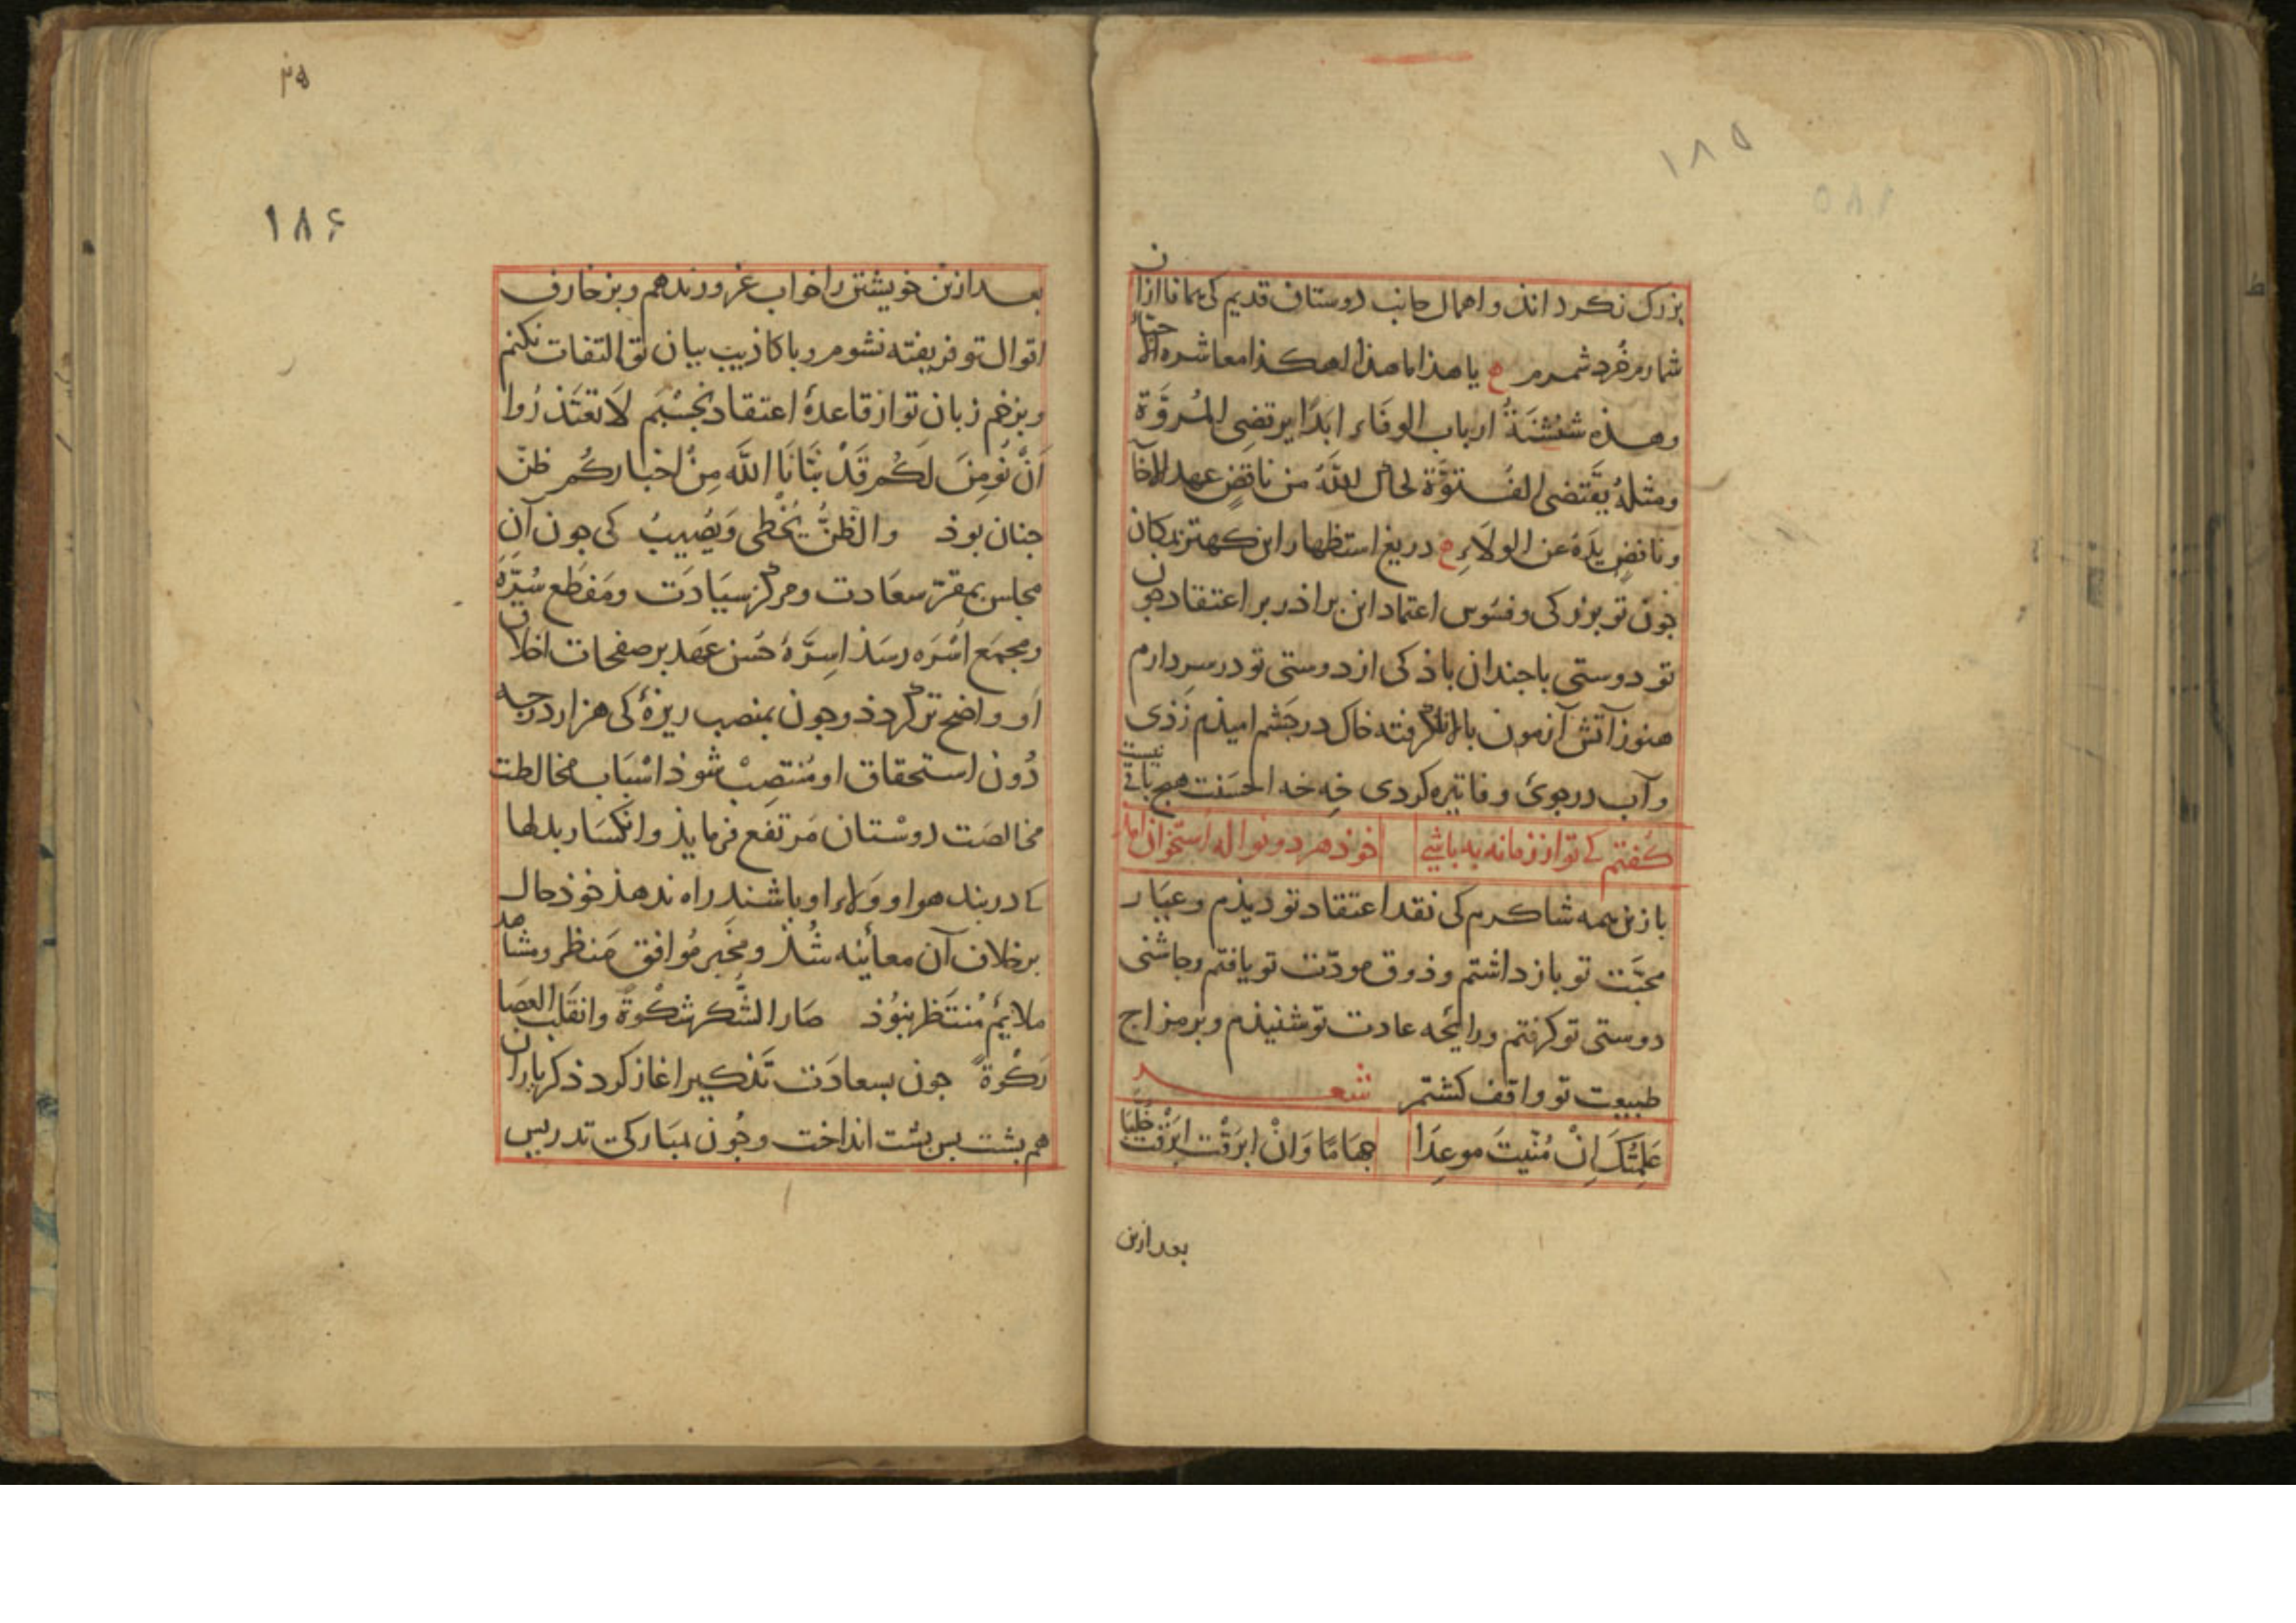 ۱۸۵
بزرک نکرداند و اهمال جانب دوستان قدیم کی همانا از آن
شمارم خرد شمرم ع یا هذا ما هذا لهکذا معاشره الاحبّاء
وهذه شنشنَةُ ارباب الوفَاء ابدًا یرتضی المُروَّة
ومثلهُ یقتضی الفُتوَّة لحاک اللّه من ناقضٍ عهد الاخآ
ونافضٍ یدَهُ عن الولاءِ ع دریغ استظهار این کهتر بمکان
جون تو بزرکی و فسوس اعتماد این براذر بر اعتقاد جون
تو دوستی باجندان باذ کی از دوستی تو در سر دارم
هنوز آتش آزمون بالا نکرفته خاک در جَشم امیذم زَذی
و آب در جوی وفا تیره کردی خِه خه احسَنت هیج باقی نیست
کفتم کی تو از زمانه به باشی خوذ هر دو نواله استخوان امد
بازین همه شاکرم کی نقد اعتقاد تو دیذم و عیَار
محبَّت تو باز داشتم و ذوق مودّت تو یافتم و جاشنی
دوستی تو کرفتم و رایحه عادت تو شنیذم و بر مزاج
طبیعت تو واقف کشتم شعر
عَلِمتُکَ اِنْ مُنّیتَ موعِدَا جهَامًا وَانْ ابرَقْت ابرَقْتَ خُلَّبَا
بعد ازین
۱۸۶
بعد ازین خویشتن را خواب غرور ندهم و بزخارف
اقوال تو فریفته نشوم و با کاذیب بیان تو التفات نکنم
و بزخم زبان تو از قاعدهٔ اعتقاد نجسْبَم لاَ تعتَذرُوا
لَنْ نُومِنَ لَکُم قَدْ نبَّانَا اللَّه مِنْ اخبارکُم ظنّ
جنان بوذ والظنُّ یُخْطی وَیُصیبُ کی جون آن
مجلس بمقرّ سعَادت و مرکز سیَادَت و مَقطَع سُرّه
و مجمَع اُسْرَه رسَذ اسِرَّهٔ حُسن عهد بر صفحات اخلاق
او واضح تر کردذ و جون بمنصب ریزهٔ کی هزار درجه
دُون استحقاق او مُنتصِبْ شوذ اسْبَاب مخالطت
مخالصَت دوسْتان مَرتفع فرمایذ و انکسَار بدلها
کی در بند هوا و وَلاء او باشند راه ندهذ خوذ حال
بر خلاف آن معاینه شُذ و مخبَر مُوافق مَنظر و مشاهد
ملایم مُنتَظر نبُوذ صَار الشّکر شکْوةً وانقلب العصَا
رَکْوةً جون بسعادَت تَذکیر اغاز کرد ذکر یاران
هم بشت بس بشت انداخت و جُون بمبَارکی تدریس